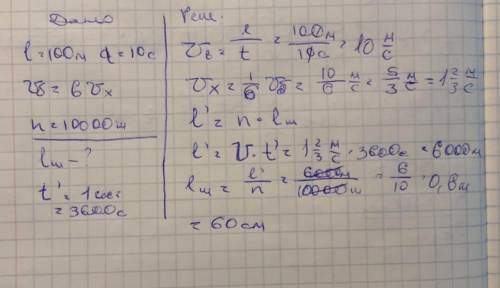 Дано
l = 100м t = 10с
v_б = 6 v_х
n = 10000ш
l_ш - ?
t' = 1 час
= 3600с
Реше.
v_б = l/t = 100м/10с = 10 м/с
v_х = 1/6 v_б = 10/6 м/с = 5/3 м/с = 1 2/3 м/с
l' = n · l_ш
l' = v · t' = 1 2/3 м/с · 3600с = 6000м
l_ш = l'/n = 6000м/10000ш = 6/10 = 0,6м
= 60см